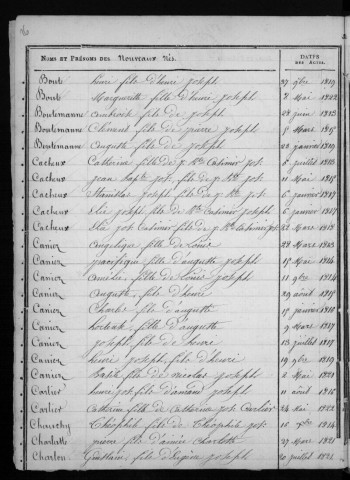 NOMS ET PRÉNOMS DES Nouveaux Nés. DATES DES ACTES.
Bout henri fils d'henri joseph 27 9bre 1819
Bout Marguerite fille d'henri joseph 8 Mai 1822
Boutemanne Ambroise fils de joseph 28 juin 1813
Boutemanne Clément fils de pierre joseph 8 Mars 1815
Boutemanne Auguste fils de joseph 20 janvier 1819
Cacheux Catherine fille de p. Casimir jos. 6 juillet 1813
Cacheux jean Bapte jos. fils de p. jos. 11 Mai 1815
Cacheux Stanislas joseph fils de p. jos. 6 janvier 1817
Cacheux Elie joseph fils de Casimir joseph 6 janvier 1817
Cacheux Elie jos. Casimir fils de p. Casimir jos. 22 Mars 1818
Canier Angelique fille de Louis 28 Mars 1813
Canier pacifique fille d'auguste joseph 15 Mai 1814
Canier Amélie fille de Louis joseph 11 9bre 1814
Canier Auguste fils d'henri 29 aout 1815
Canier Charles fils d'auguste 15 janvier 1816
Canier fille d'auguste 9 Mars 1817
Canier joseph fils de henri 13 juillet 1817
Canier henri joseph fils d'henri 19 9bre 1819
Canier fille de nicolas joseph 2 Mai 1821
Carlier henri jos. fils d'amand joseph 11 août 1816
Carlier Catherine fille de Catherine jos. Carlier 24 Mai 1822
Chauchy Théophile fils de Théophile jos. 10 7bre 1814
Charlotte pierre fils d'aimée Charlotte 27 Mars 1821
Charlon Ghislain fils d'Eugène joseph 20 juillet 1821